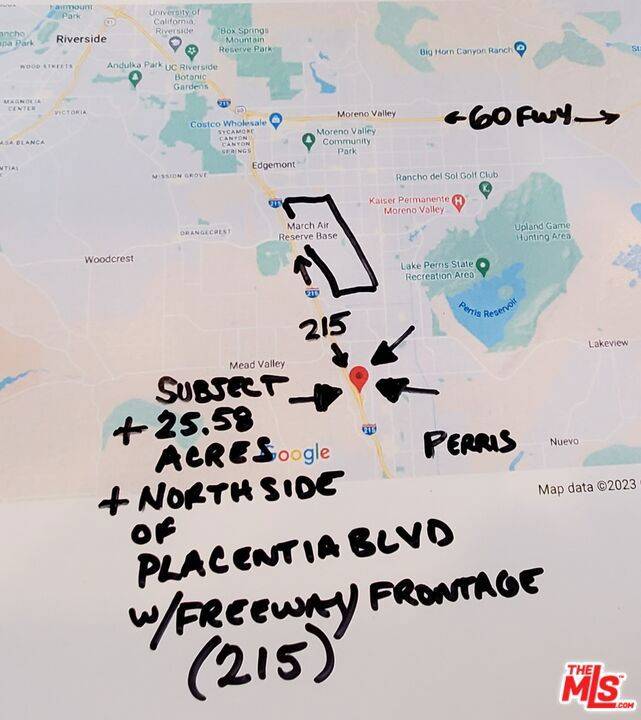 Fairmount
Park
University of
California,
Riverside
Box Springs
Mountain
Reserve Park
Riverside
Big Horn Canyon Ranch
WOOD STREETS
Andulka Park
UC Riverside
Botanic
Gardens
MAGNOLIA
CENTER
VICTORIA
215
60
Costco Wholesale
Moreno Valley
← 60 FWY →
SYCAMORE
CANYON
CANYON
SPRINGS
Moreno Valley
Community
Park
CASA BLANCA
Edgemont
MISSION GROVE
Rancho del Sol Golf Club
215
Kaiser Permanente
Moreno Valley
H
ORANGECREST
March Air
Reserve Base
Upland Game
Hunting Area
Woodcrest
Lake Perris State
Recreation Area
215
Perris Reservoir
215
Lakeview
Mead Valley
SUBJECT
+ 25.58
ACRES
215
PERRIS
Nuevo
Google
Map data ©2023
+ NORTH SIDE
OF
PLACENTIA BLVD
W/FREEWAY FRONTAGE
(215)
THE
MLS™
.COM